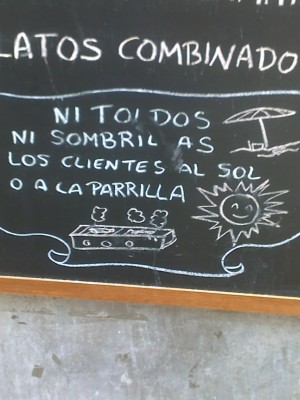 LATOS COMBINADO
NI TOLDOS
NI SOMBRIL AS
LOS CLIENTES AL SOL
O A LA PARRILLA